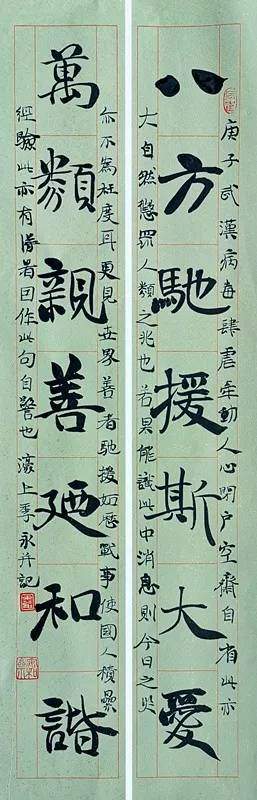 庚子武漢病毒肆虐牽動人心閉户空齋自省此亦
八方馳援斯大愛
大自然懲罰人類之兆也若果能識此中消息則今日之災
亦不為枉度耳更見世界善者馳援如歷戰事使國人積纍
萬類親善廼和諧
經驗此亦有得者因作此句自警也濠上季永并記